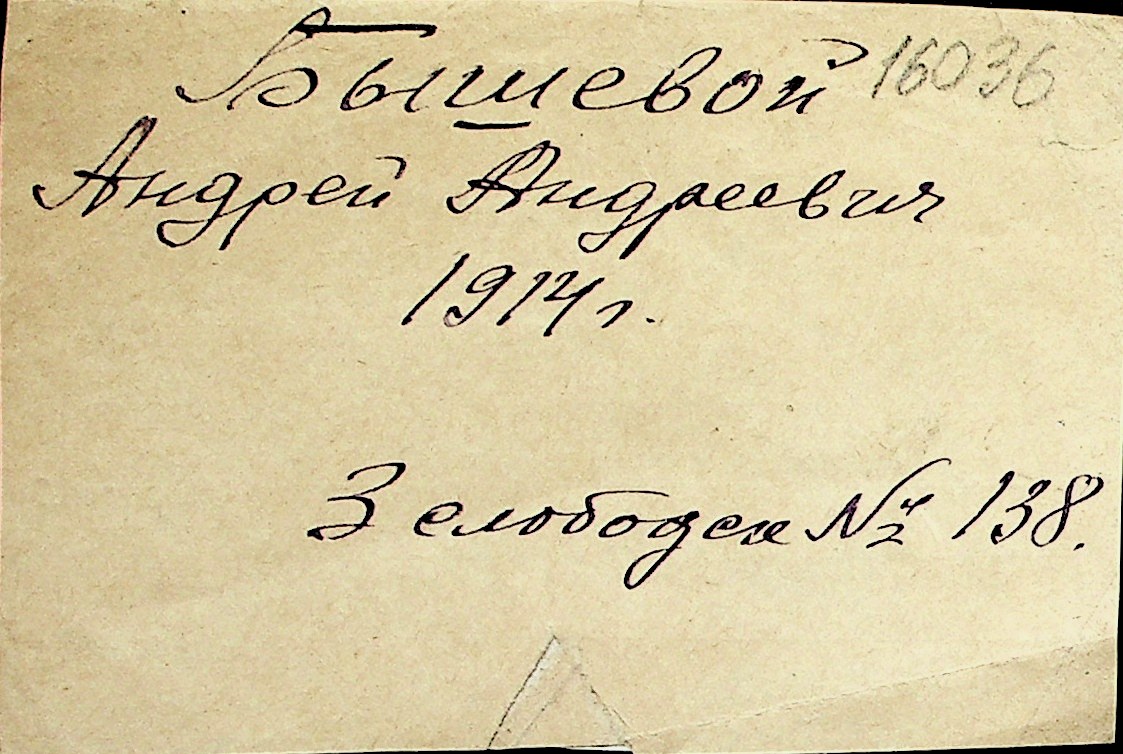 Бышевой 16036
Андрей Андреевич
1914 г.
3 слободск № 138.